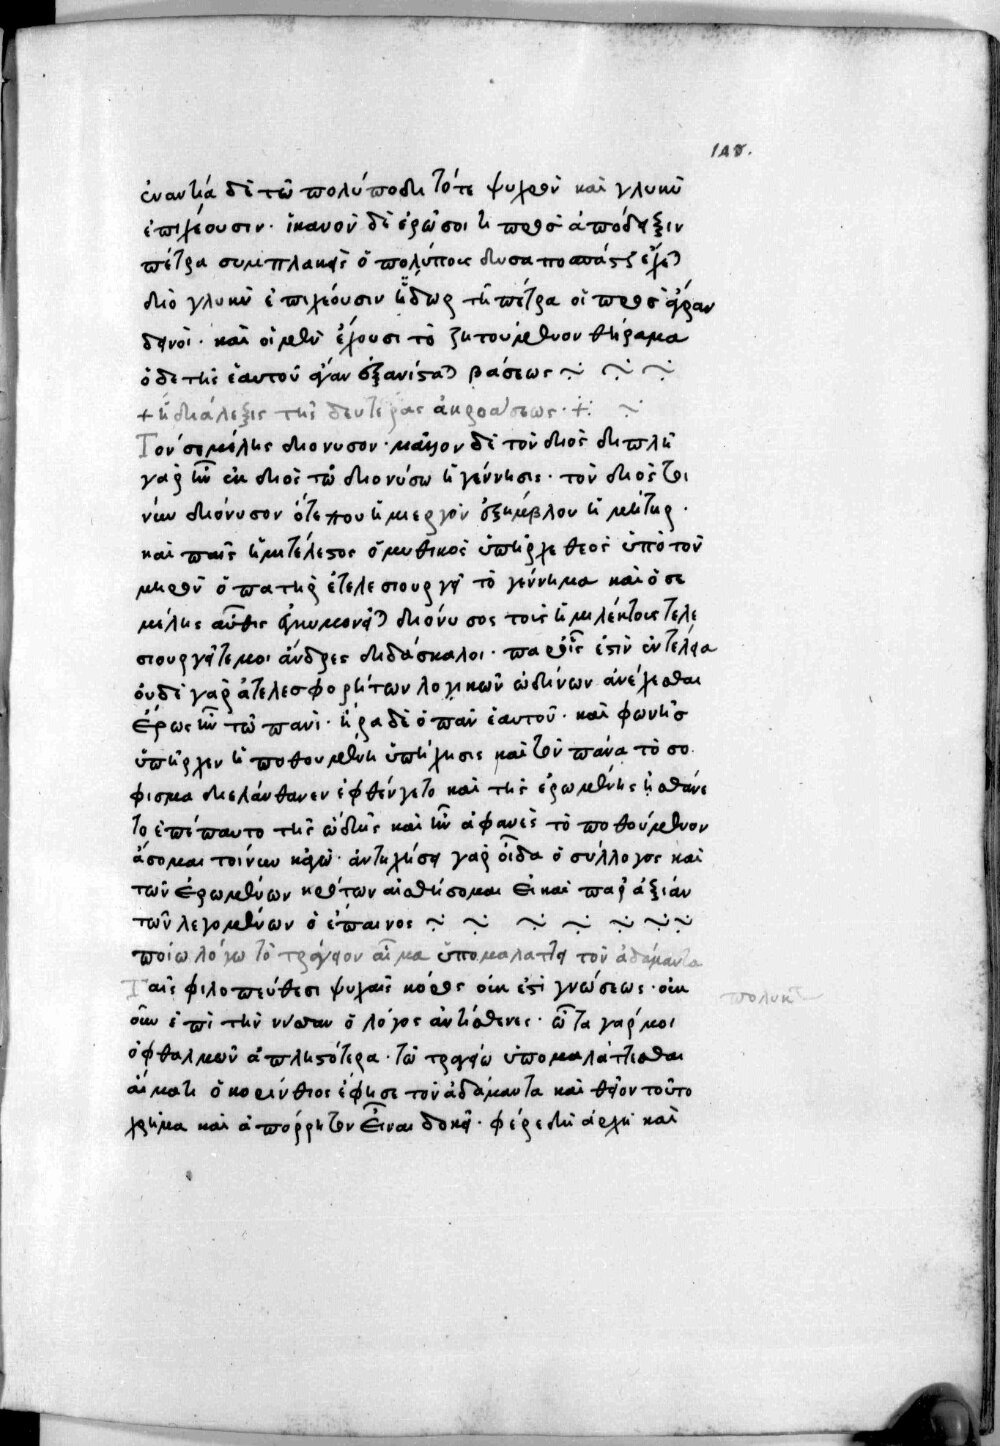 148.
ἐναντία δὲ τῶ πολύποδι τότε ψυχρὸν καὶ γλυκὺ
ἐπιχέουσιν· ἱκανὸν δὲ ἐρῶ σοι τι πρὸς ἀπόδειξιν
πέτρα συμπλακεὶς ὁ πολύπους δυσαποσπάστως ἔχει
διὸ γλυκὺ ἐπιχέουσιν ὕδωρ τῆ πέτρα οἱ πρὸς ἄγραν
δεινοί· καὶ οἱ μὲν ἔχουσι τὸ ζητούμενον θήραμα
ὁ δὲ τῆς ἑαυτοῦ ἐξανίσταται βάσεως
+ ἡ διάλεξις τῆς δευτέρας ἀκροάσεως· +
Τὸν σεμέλης διόνυσον· μᾶλλον δὲ τὸν διὸς διπλῆ
γὰρ ἦν ἐκ διὸς τῶ διονύσω ἡ γέννησις· τὸν διὸς τοι
νῦν διόνυσον ὅτέ που ἡμιεργὸν ἐξήμβλου ἡ μήτηρ·
καὶ παῖς ἡμιτέλεστος ὁ μυθικὸς ὑπῆρχε θεὸς ὑπὸ τὸν
μηρὸν ὁ πατὴρ ἐτελεσιουργει τὸ γέννημα καὶ ὁ σε
μέλης αὖθις διόνυσος τοῖς ἡμιλέκτοις τελε
σιουργεῖτέ μοι ἄνδρες διδάσκαλοι· παρ' οἷς ἐστὶν ἐντελεια
οὐδὲ γὰρ ἀτελεσφορήτων λογικῶν ὠδίνων ἀνέχεσθαι
Ἔρως ἦν τῶ πανὶ· ἤρα δὲ ὁ πὰν ἑαυτοῦ· καὶ φωνῆς
ὑπῆρχεν ἡ ποθουμένη ὑπήχησις καὶ τὸν πάνα τὸ σό
φισμα διελάνθανεν ἐφθέγγετο καὶ τῆς ἐρωμένης ἠσθάνε
το ἐπέπαυτο τῆς ὠδῆς καὶ ἦν ἀφανὲς τὸ ποθούμενον
ἄσομαι τοίνυν κἀγώ· ἀντηχήσει γὰρ οἶδα ὁ σύλλογος καὶ
τῶν ἐρωμένων κρότων αἰσθήσομαι εἰ καὶ παρ' ἀξίαν
τῶν λεγομένων ὁ ἔπαινος
ποίω λόγω τὸ τράγειον αἷμα ὑπομαλάττει τὸν ἀδάμαντα
Ταῖς φιλοπεύθεσι ψυχαῖς κόρος οὐκ ἔστι γνώσεως· οὐκ
οὖν ἐπὶ τὴν νύσσαν ὁ λόγος ἀντίσθενες· ὦτα γάρ μοι
ὀφθαλμῶν ἀπληστότερα· τῶ τραγείω ὑπομαλάττεσθαι
αἵματι ὁ κορίνθιος ἔφησε τὸν ἀδάμαντα καὶ θεῖον τοῦτο
χρῆμα καὶ ἀπόρρητον εἶναι δοκεῖ· φέρε δὴ ἀρχὴ καὶ